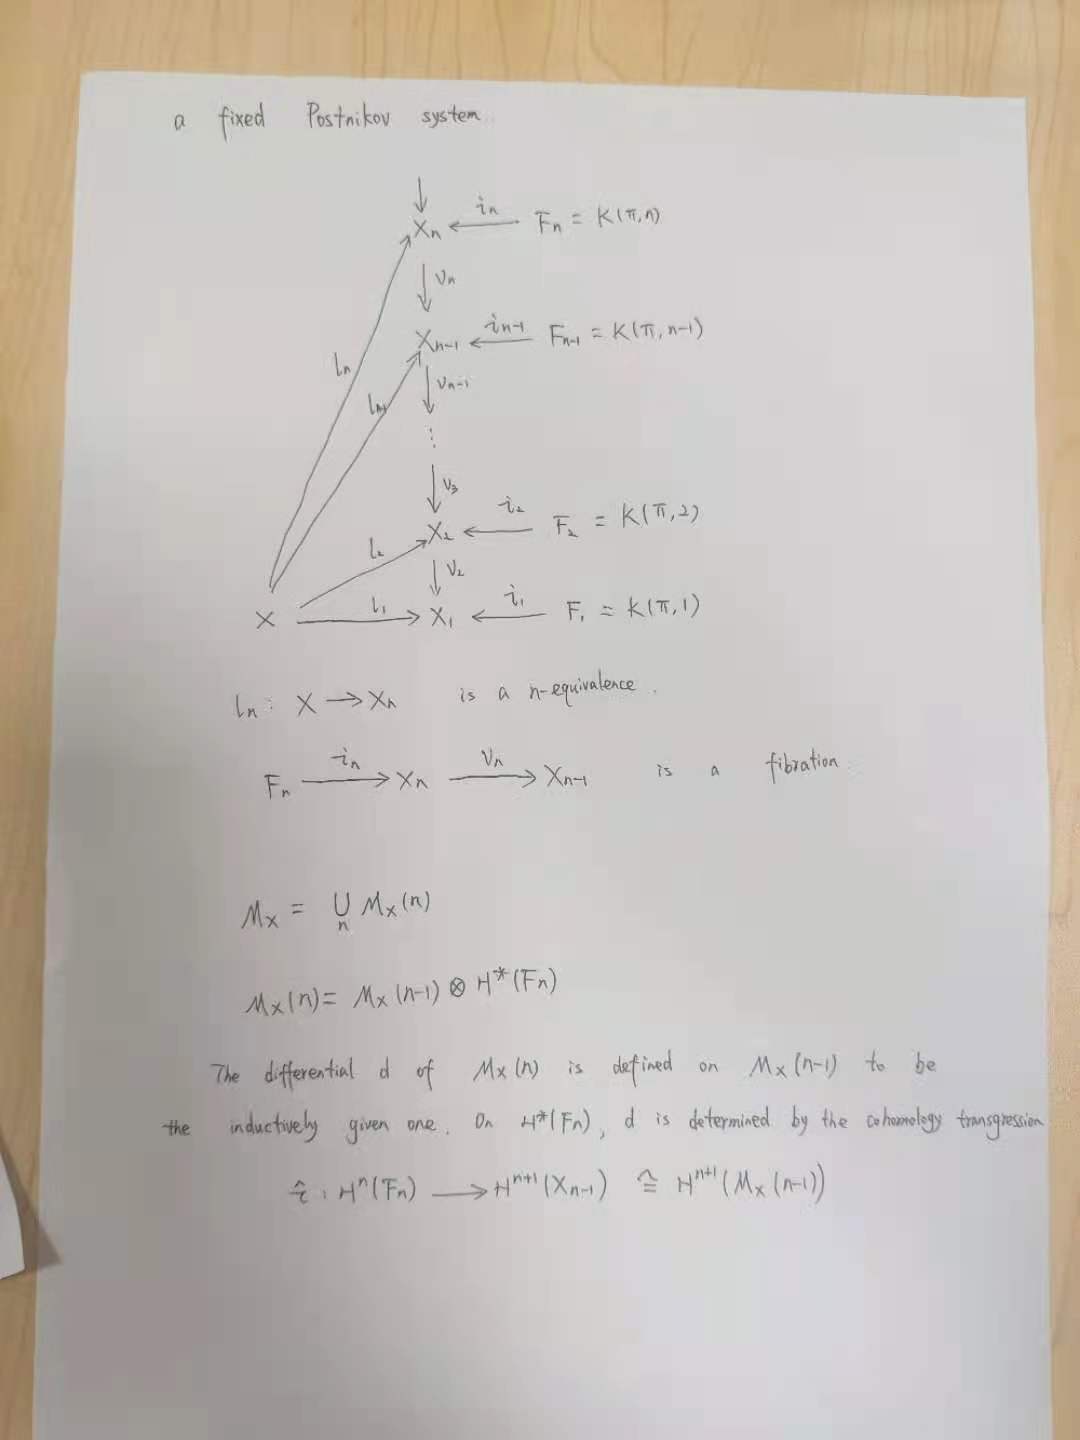 a fixed Postnikov system
Xn ←in Fn = K(π,n)
↓ νn
ln
Xn-1 ←in-1 Fn-1 = K(π, n-1)
↓ νn-1
ln-1
⋮
↓ ν3
X2 ←i2 F2 = K(π,2)
l2
↓ ν2
X →l1 X1 ←i1 F1 = K(π,1)
ln : X → Xn is a n-equivalence.
Fn →in Xn →νn Xn-1 is a fibration
MX = ∪n MX(n)
MX(n) = MX(n-1) ⊗ H*(Fn)
The differential d of MX(n) is defined on MX(n-1) to be
the inductively given one. On H*(Fn), d is determined by the cohomology transgression
τ̂ : Hⁿ(Fn) → Hⁿ⁺¹(Xn-1) ≅ Hⁿ⁺¹(MX(n-1))